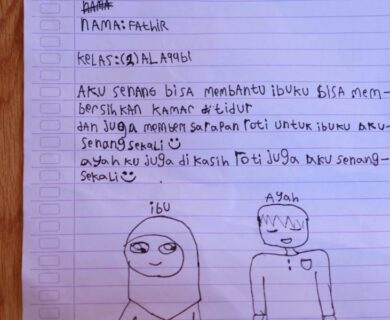 NAMA: FATHIR
KELAS: (2) AL AQQBI
AKU SENANG BISA MEMBANTU IBUKU BISA MEM-
BERSIHKAN KAMAR diTIDUR
dan JUGA MEMBERI SARAPAN ROTI UNTUK IBUKU AKU-
SENANG SEKALI
AYAH KU JUGA di KASIH ROTI JUGA AKU SENANG-
SEKALI
IBU
AYAH